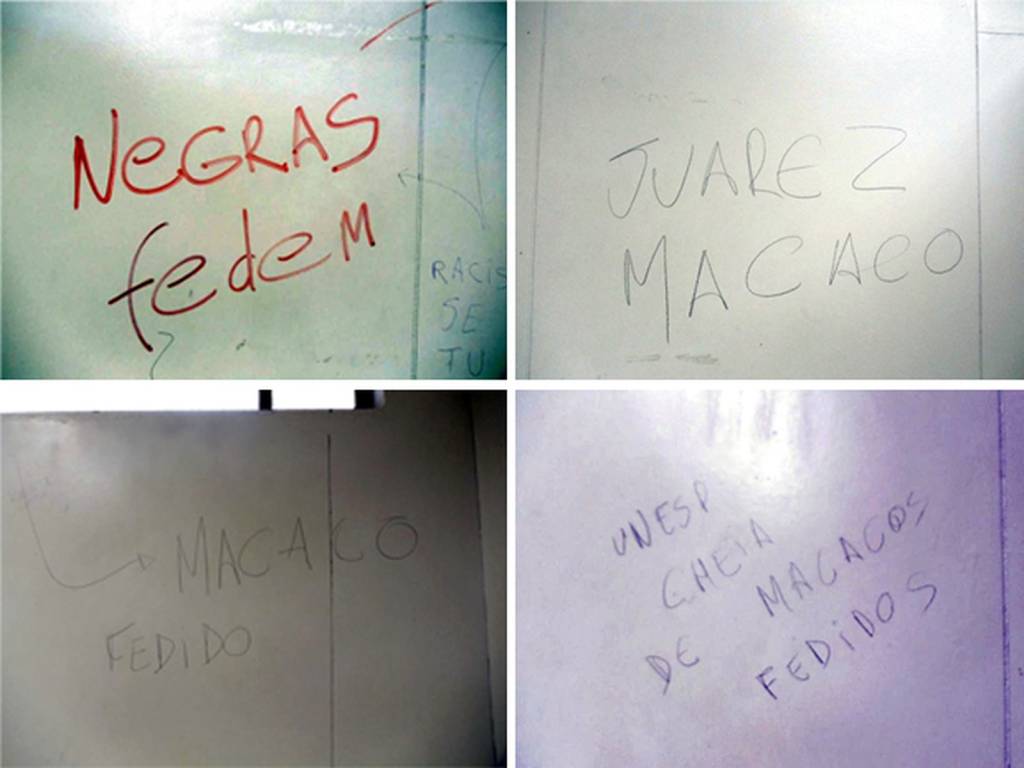 NeGRAS
fedeM
RACIS
SE
TU
JUAREZ
MACACO
MACACO
FEDIDO
UNESP
CHEIA
DE MACACOS
FEDIDOS